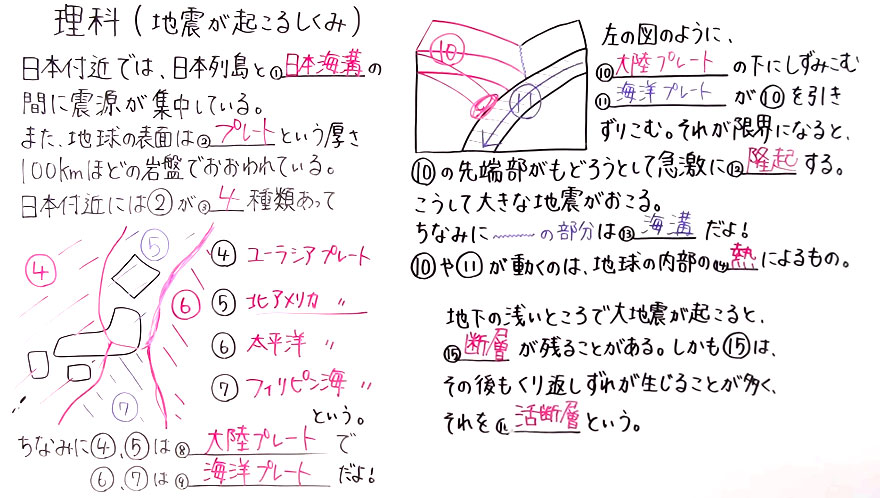 理科(地震が起こるしくみ)
日本付近では、日本列島と①日本海溝の
間に震源が集中している。
また、地球の表面は②プレートという厚さ
100kmほどの岩盤でおおわれている。
日本付近には②が③4種類あって
④
⑤
⑥
⑦
④ ユーラシアプレート
⑤ 北アメリカ 〃
⑥ 太平洋 〃
⑦ フィリピン海 〃
という。
ちなみに④、⑤は⑧大陸プレートで
⑥、⑦は⑨海洋プレートだよ!
⑩
⑪
左の図のように、
⑩大陸プレートの下にしずみこむ
⑪海洋プレートが⑩を引き
ずりこむ。それが限界になると、
⑩の先端部がもどろうとして急激に⑫隆起する。
こうして大きな地震がおこる。
ちなみに〜〜の部分は⑬海溝だよ!
⑩や⑪が動くのは、地球の内部の⑭熱によるもの。
地下の浅いところで大地震が起こると、
⑮断層が残ることがある。しかも⑮は、
その後もくり返しずれが生じることが多く、
それを⑯活断層という。